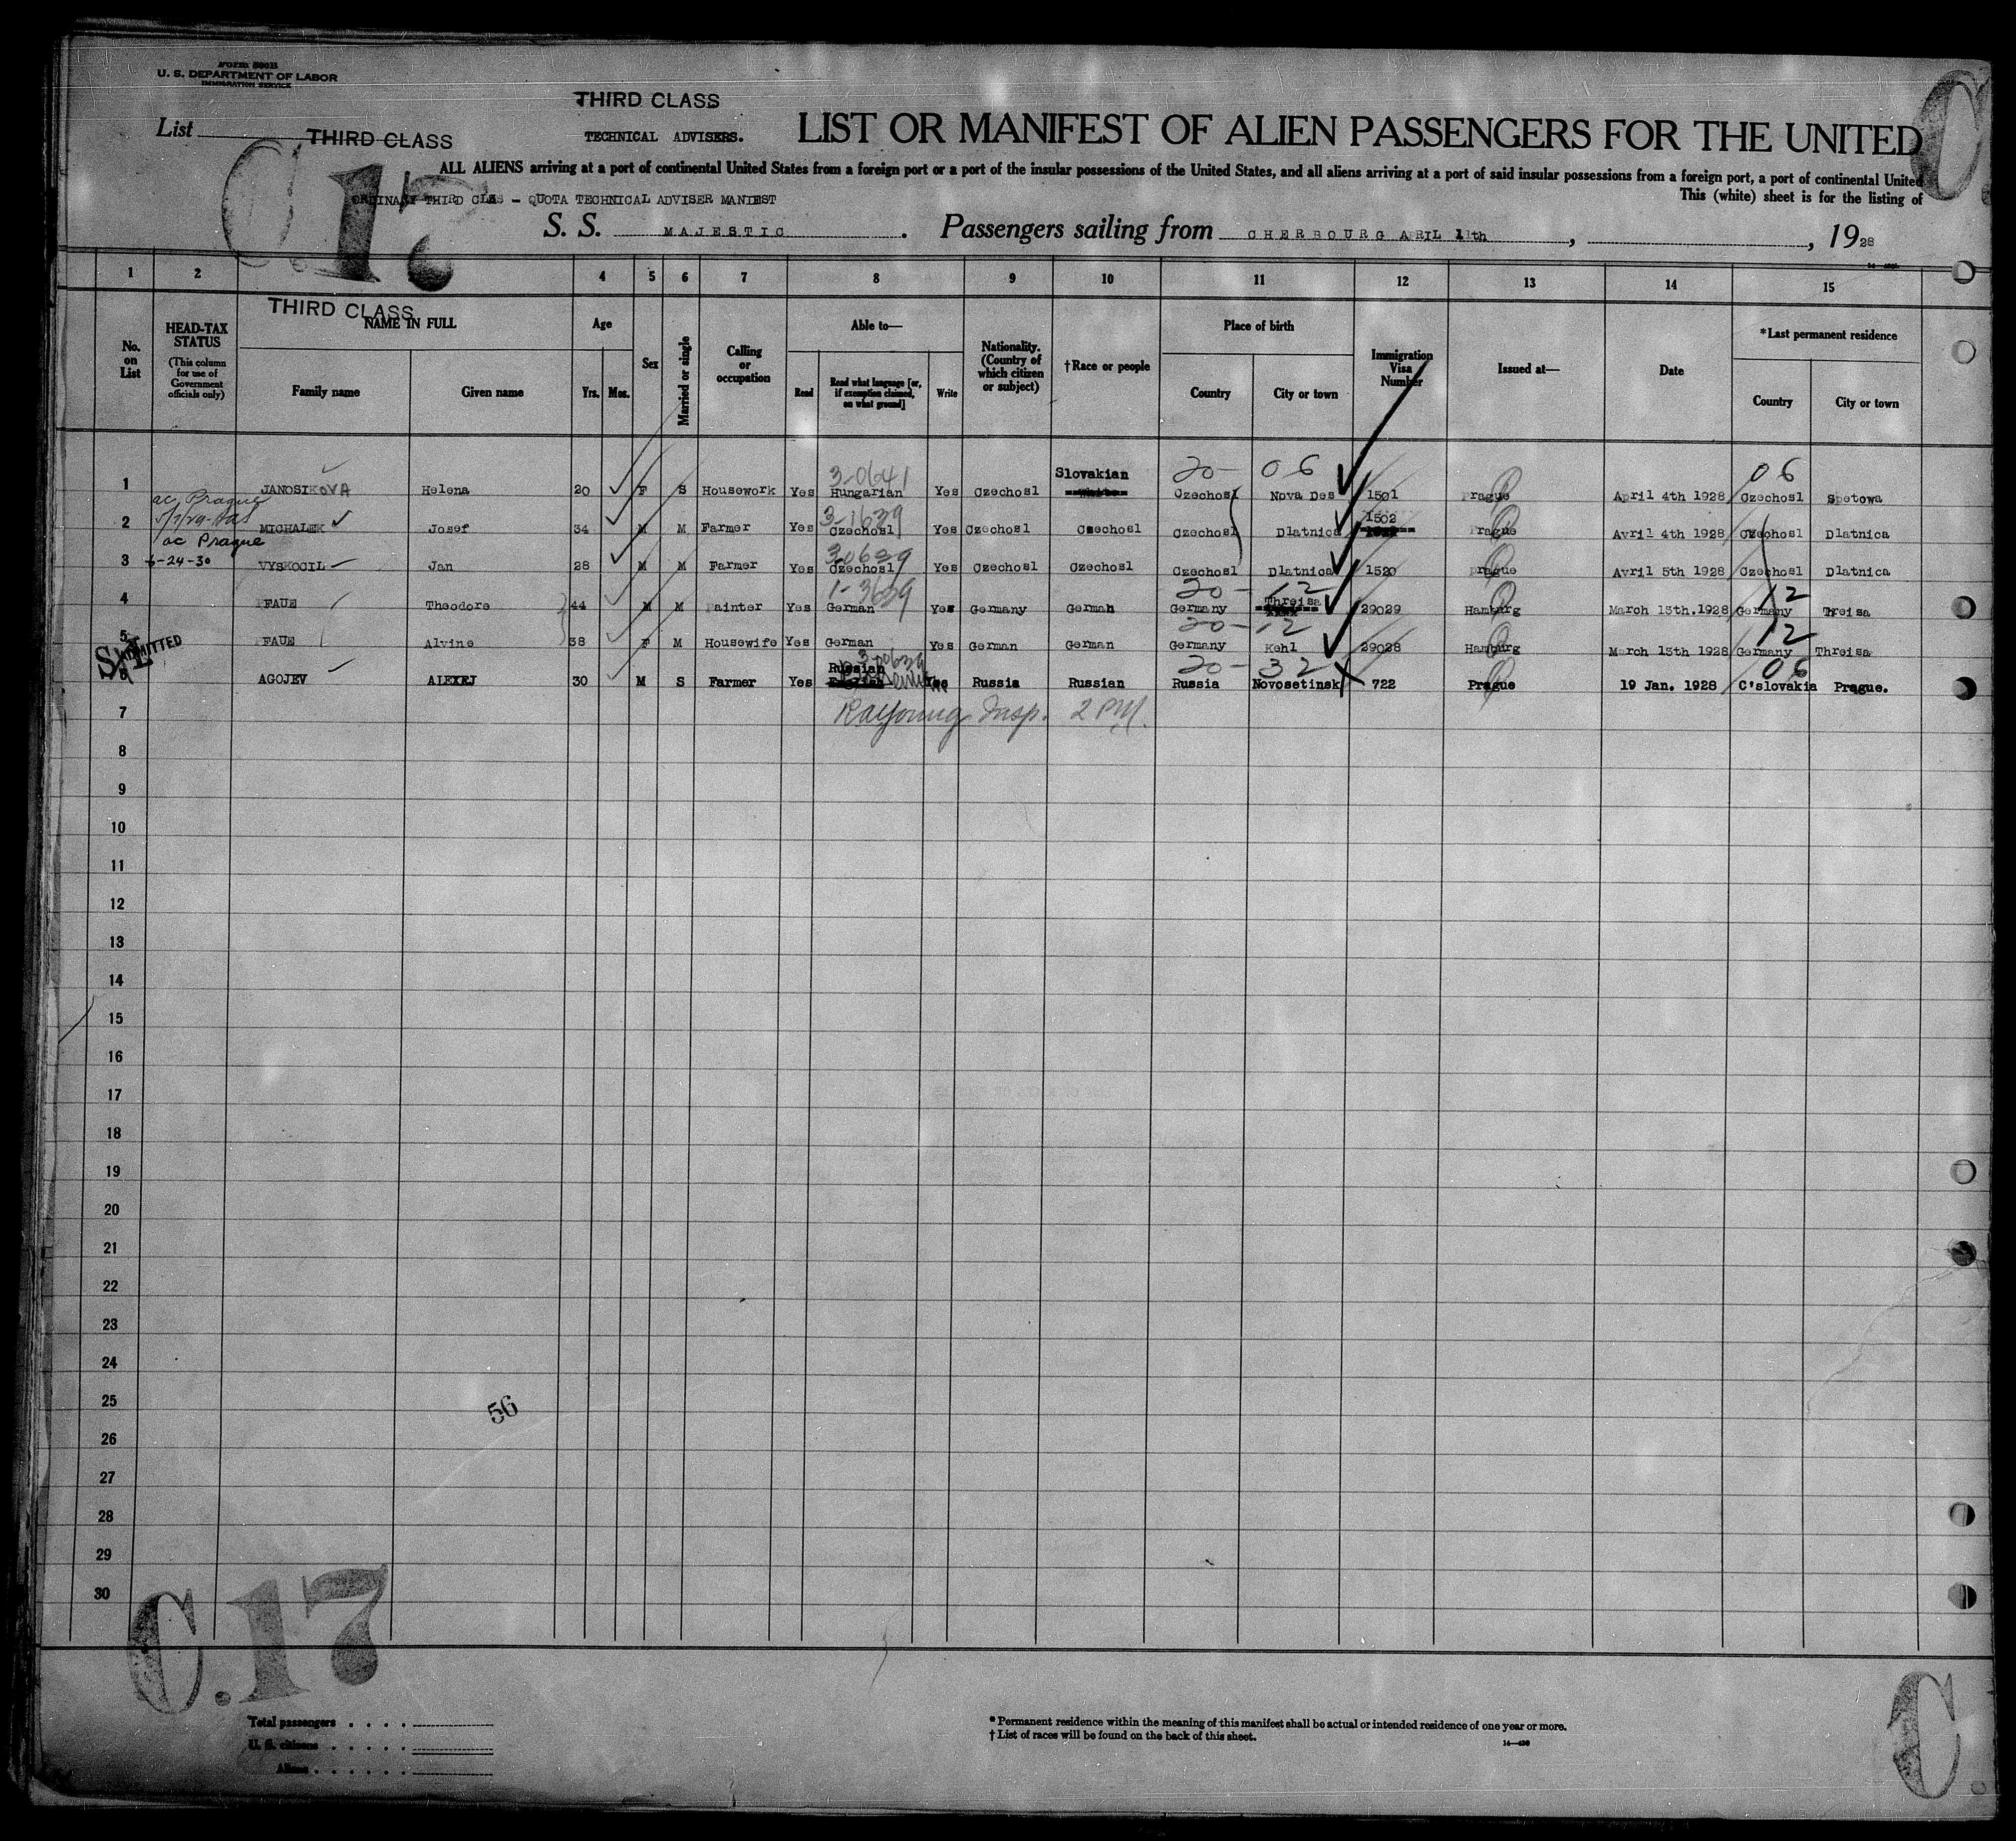 FORM 500B
U. S. DEPARTMENT OF LABOR
IMMIGRATION SERVICE
THIRD CLASS
List THIRD CLASS
TECHNICAL ADVISERS.
LIST OR MANIFEST OF ALIEN PASSENGERS FOR THE UNITED
C.17
C.
ALL ALIENS arriving at a port of continental United States from a foreign port or a port of the insular possessions of the United States, and all aliens arriving at a port of said insular possessions from a foreign port, a port of continental United
ORDINARY THIRD CLAS - QUOTA TECHNICAL ADVISER MANIEST
This (white) sheet is for the listing of
S. S. MAJESTIC. Passengers sailing from CHERBOURG APRIL 11th, , 1928
1 2 4 5 6 7 8 9 10 11 12 13 14 15
THIRD CLASS
No. on List
HEAD-TAX STATUS
(This column for use of Government officials only)
NAME IN FULL
Family name Given name
Age
Yrs. Mos.
Sex
Married or single
Calling or occupation
Able to—
Read Read what language [or, if exemption claimed, on what ground] Write
Nationality. (Country of which citizen or subject)
†Race or people
Place of birth
Country City or town
Immigration Visa Number
Issued at—
Date
*Last permanent residence
Country City or town
3-0641 Slovakian 20- 06 06
1 JANOSIKOVA Helena 20 F S Housework Yes Hungarian Yes Czechosl Czechosl Nova Des 1501 Prague April 4th 1928 Czechosl Spetowa
ac Prague
3-1639 1502
2 MICHALEK Josef 34 M M Farmer Yes Czechosl Yes Czechosl Czechosl Czechosl Dlatnica Prague Avril 4th 1928 Czechosl Dlatnica
ac Prague
30639
3 6-24-30 VYSKOCIL Jan 28 M M Farmer Yes Czechosl Yes Czechosl Czechosl Czechosl Dlatnica 1520 Prague Avril 5th 1928 Czechosl Dlatnica
1-3639 20- 12 Threisa 12
4 FAUE Theodore 44 M M Painter Yes German Yes Germany German Germany 29029 Hamburg March 13th.1928 Germany Threisa
20- 12 12
5 FAUE Alvine 38 F M Housewife Yes German Yes German German Germany Kehl 29028 Hamburg March 13th 1928 Germany Threisa
S.I. ADMITTED
3-00639 Russian 20- 32 06
6 AGOJEV ALEXEJ 30 M S Farmer Yes English Yes Russia Russian Russia Novosetinsk 722 Prague 19 Jan. 1928 C'slovakia Prague.
7 RaYoung Insp. 2 PM.
8
9
10
11
12
13
14
15
16
17
18
19
20
21
22
23
24
25
56
26
27
28
29
30
C.17
C.
Total passengers
U. S. citizens
Aliens
* Permanent residence within the meaning of this manifest shall be actual or intended residence of one year or more.
† List of races will be found on the back of this sheet.
14—430